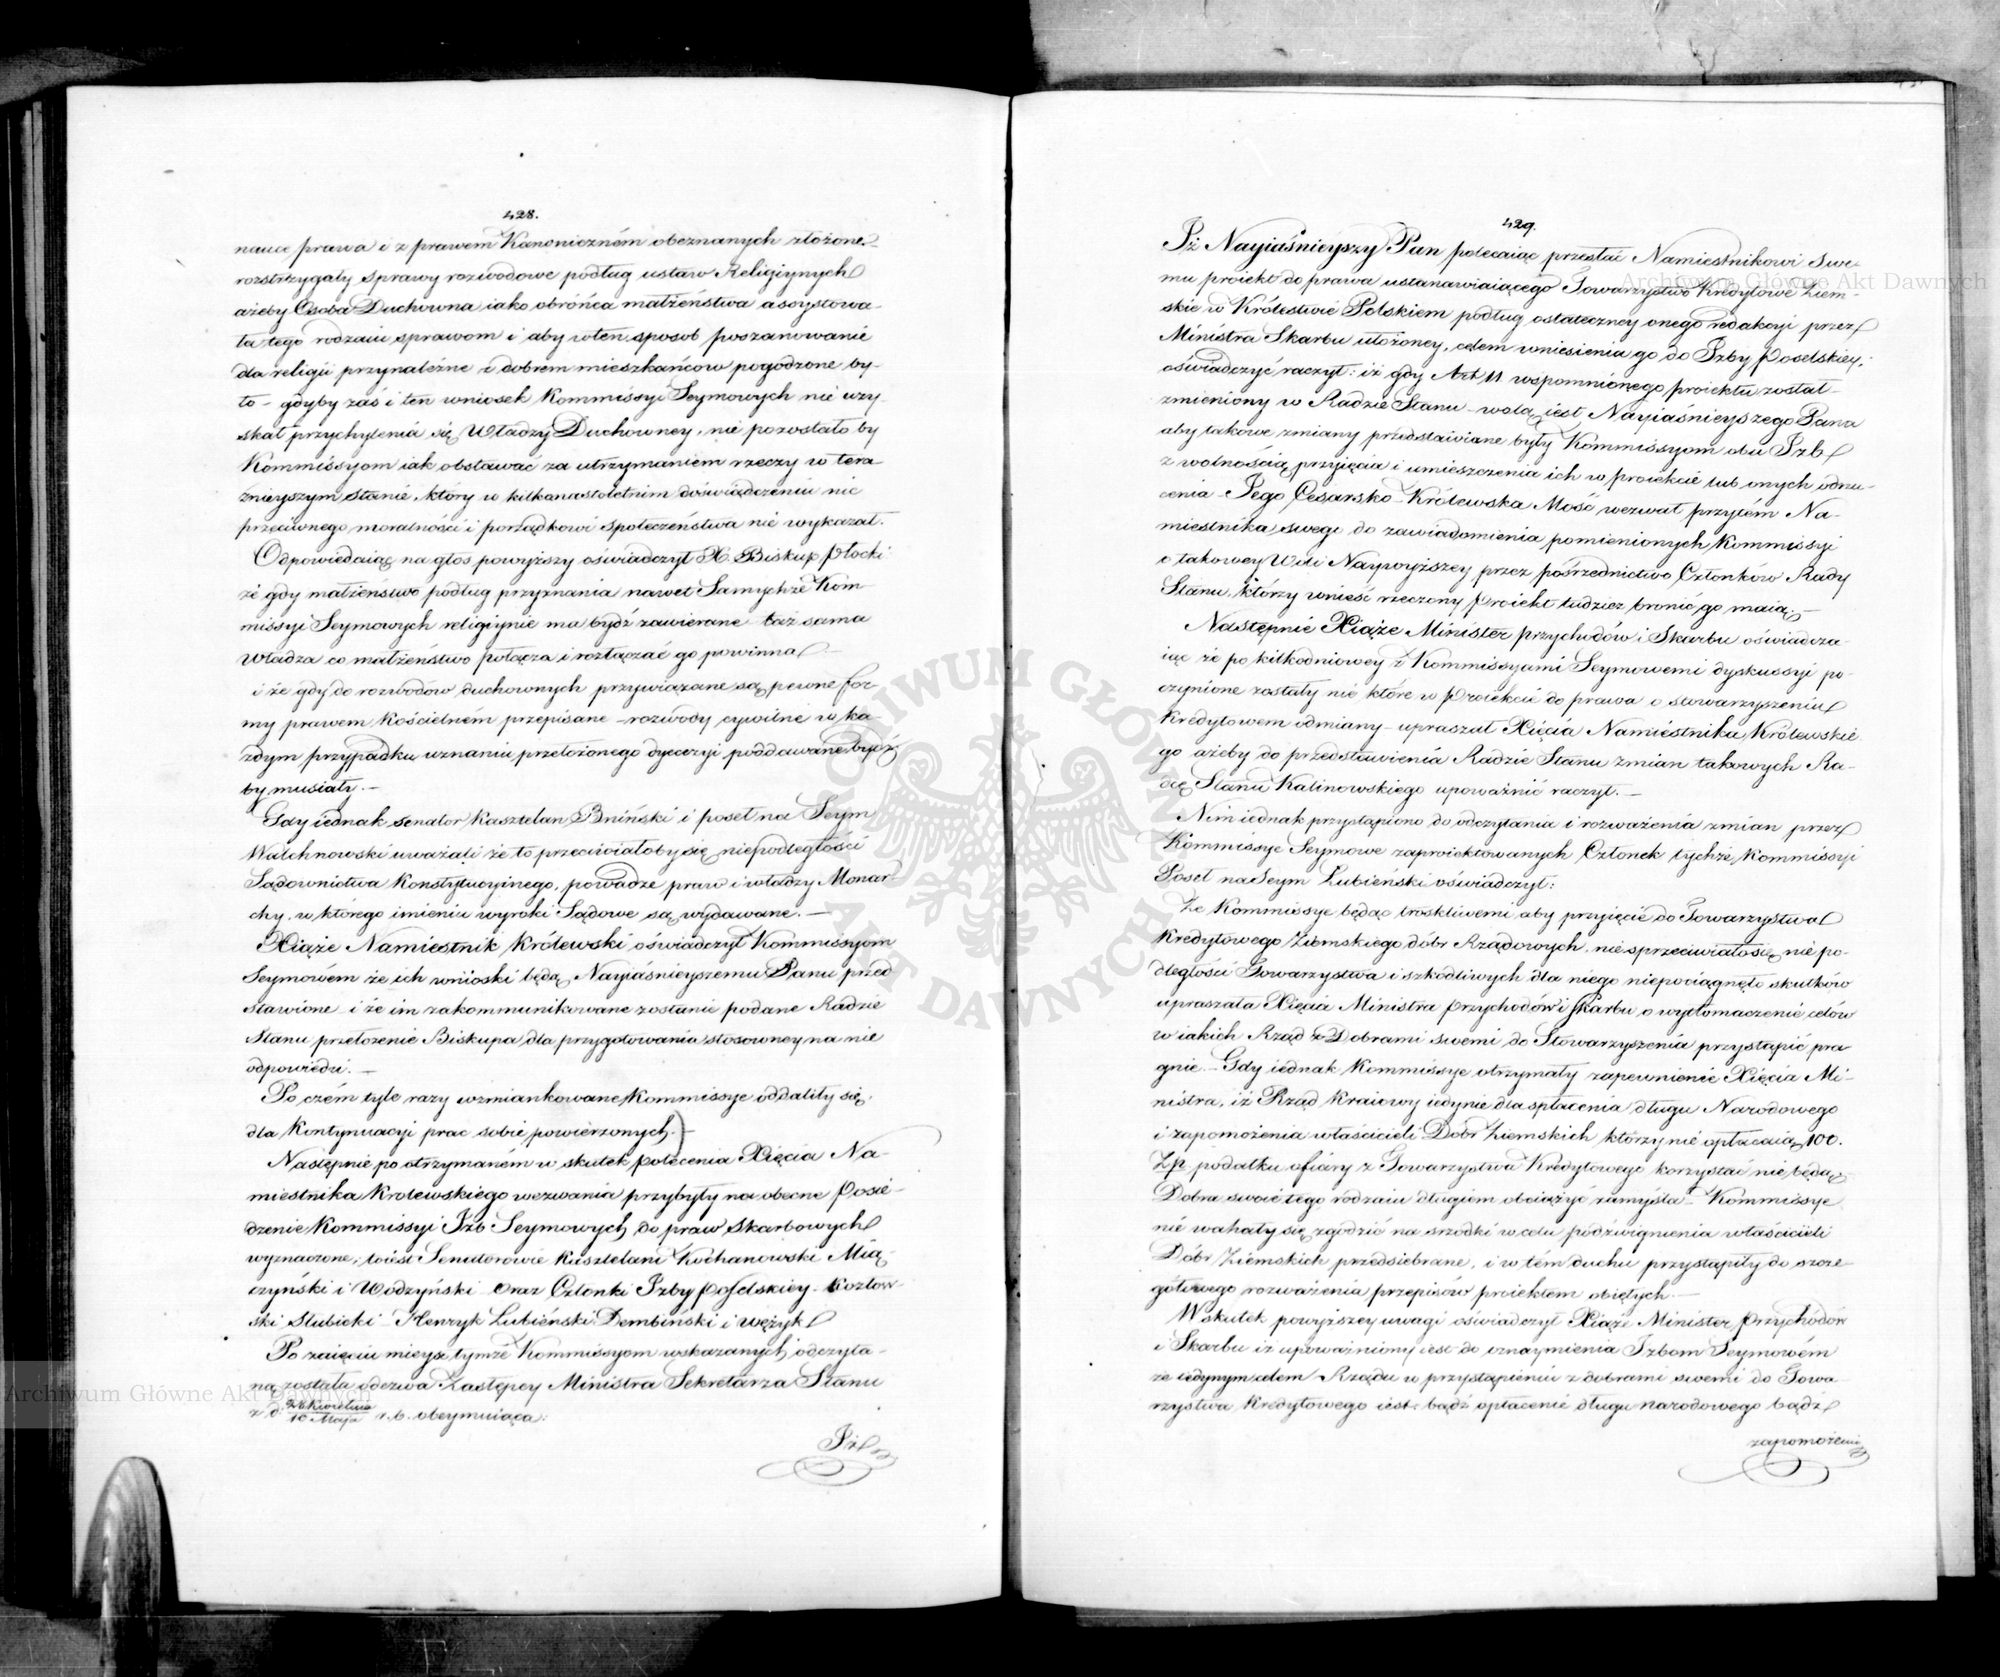 428.
nauce prawa i z prawem Kanoniczném obeznanych złożone
rozstrzygały sprawy rozwodowe podług ustaw Religiynych
ażeby Osoba Duchowna iako obrońca małżeństwa assystowa-
ła tego rodzaiu sprawom i aby w ten sposob poszanowanie
dla religii przynależne z dobrem mieszkańcow pogodzone by-
ło - gdyby zaś i ten wniosek Kommissyi Seymowych nie uzy-
skał przychylenia się Władzy Duchowney, nie pozostało by
Kommissyom iak obstawać za utrzymaniem rzeczy w tera
źnieyszym stanie, który w kilkanastoletnim doświadczeniu nic
przeciwnego moralności i porządkowi społeczeństwa nie wykazał.
Odpowiedaiąc na głos powyższy oświadczył X. Biskup Płocki
że gdy małżeństwo podług przyznania nawet Samychże Kom
missyi Seymowych religiynie ma bydź zawierane taż sama
Władza co małżeństwo połącza i rozłączać go powinna
i że gdy do rozwodów duchownych przywiązane są pewne for
my prawem Kościelném przepisane - rozwody cywilne w ka
żdym przypadku uznaniu przełożonego dyecezyi poddawane być
by musiały. -
Gdy iednak senator Kasztelan Bniński i poseł na Seym
Walchnowski uważali że to przeciwiałoby się niepodległości
Sądownictwa Konstytucyinego, powadze praw i władzy Monar-
chy, w którego imieniu wyroki Sądowe są wydawane. -
Xiąże Namiestnik Królewski oświadczył Kommissyom
Seymowém że ich wnioski będą Nayiaśnieyszemu Panu przed
stawione i że im zakommunikowane zostanie podane Radzie
Stanu przełożenie Biskupa dla przygotowania stosowney na nie
odpowiedzi. -
Po czém tyle razy wzmiankowane Kommissye oddaliły się
dla Kontynuacyi prac sobie powierzonych. -
Następnie po otrzymaném w skutek polecenia Xięcia Na-
miestnika Krolewskiego wezwania przybyły na obecne Posie-
dzenie Kommissyi Izb Seymowych do praw Skarbowych
wyznaczone; to iest Senatorowie Kasztelani Kochanowski Mią-
czyński i Wodzyński oraz Członki Izby Poselskiey - Kozłow-
ski Słubicki - Henryk Łubiénski Dembiński i Wężyk
Po zaięciu mieysc tymże Kommissyom wskazanych odczyta-
ną została odezwa Zastępcy Ministra Sekretarza Stanu
z d. 28 Kwietnia / 10 Maja r. b. obeymuiąca:
Iż
429.
Iż Nayiaśnieyszy Pan polecaiąc przesłać Namiestnikowi Swe-
mu proiekt do prawa ustanawiaiącego Towarzystwo Kredytowe Ziem-
skie w Królestwie Polskiem podług ostateczney onego redakcyi przez
Ministra Skarbu ułożoney, celem wniesienia go do Izby Poselskiey;
oświadczyć raczył: iż gdy Art. 11 wspomnionego proiektu został
zmieniony w Radzie Stanu - wolą iest Nayiaśnieyszego Pana
aby takowe zmiany przedstawiane były Kommissyom obu Izb
z wolnością przyięcia i umieszczenia ich w proiekcie lub onych odrzu-
cenia - Jego Cesarsko - Królewska Mość wezwał przytém Na-
miestnika swego do zawiadomienia pomienionych Kommissyi
o takowey Woli Naywyższey przez pośrednictwo Członków Rady
Stanu, którzy wnieść rzeczony Proiekt tudzież bronić go maią. -
Następnie Xiąże Minister przychodów i Skarbu oświadcza-
iąc że po kilkodniowey z Kommissyami Seymowemi dyskussyi po-
czynione zostały nie które w Proiekcie do prawa o stowarzyszeniu
Kredytowem odmiany - upraszał Xięcia Namiestnika Królewskie
go ażeby do przedstawienia Radzie Stanu zmian takowych Ra-
dcę Stanu Kalinowskiego upoważnić raczył. -
Nim iednak przystąpiono do odczytania i rozważenia zmian przez
Kommissye Seymowe zaproiektowanych Członek tychże Kommissyi
Poseł na Seym Łubieński oświadczył:
Że Kommissye będąc troskliwemi aby przyięcie do Towarzystwa
Kredytowego Ziemskiego dóbr Rządowych, nie sprzeciwiało się niepo-
dległości Towarzystwa i szkodliwych dla niego niepociągnęło skutków
upraszała Xięcia Ministra Przychodów i Skarbu o wytłomaczenie celów
w iakich Rząd z Dobrami swemi do Stowarzyszenia przystąpić pra
gnie. - Gdy iednak Kommissye otrzymały zapewnienie Xięcia Mi-
nistra, iż Rząd Kraiowy iedynie dla spłacenia długu Narodowego
i zapomożenia właścicieli Dóbr Ziemskich którzy nie opłacaią 100.
Zp podatku ofiary z Towarzystwa Kredytowego korzystać nie będą
Dobra swoie tego rodzaiu długiem obciążyć zamyśla - Kommissye
nie wahały się zgodzić na srzodki w celu podzwignienia właścicieli
Dóbr Ziemskich przedsiebrane, i w tém duchu przystąpiły do szcze-
gółowego rozważenia przepisów proiektem obiętych. -
W skutek powyższey uwagi oświadczył Xiąże Minister Przychodów
i Skarbu iż upoważniony iest do oznaymienia Izbom Seymowém
że iedynym celem Rządu w przystąpieniu z dobrami swemi do Towa-
rzystwa Kredytowego iest: bądź opłacenie długu narodowego bądź
zapomożenie
Archiwum Główne Akt Dawnych
Archiwum Główne Akt Dawnych
ARCHIWUM GŁÓWNE AKT DAWNYCH